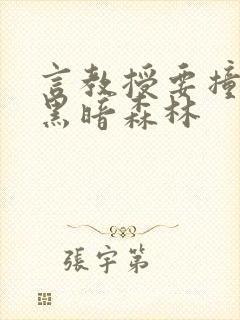 言教授要撞
黑暗森林
張宇第